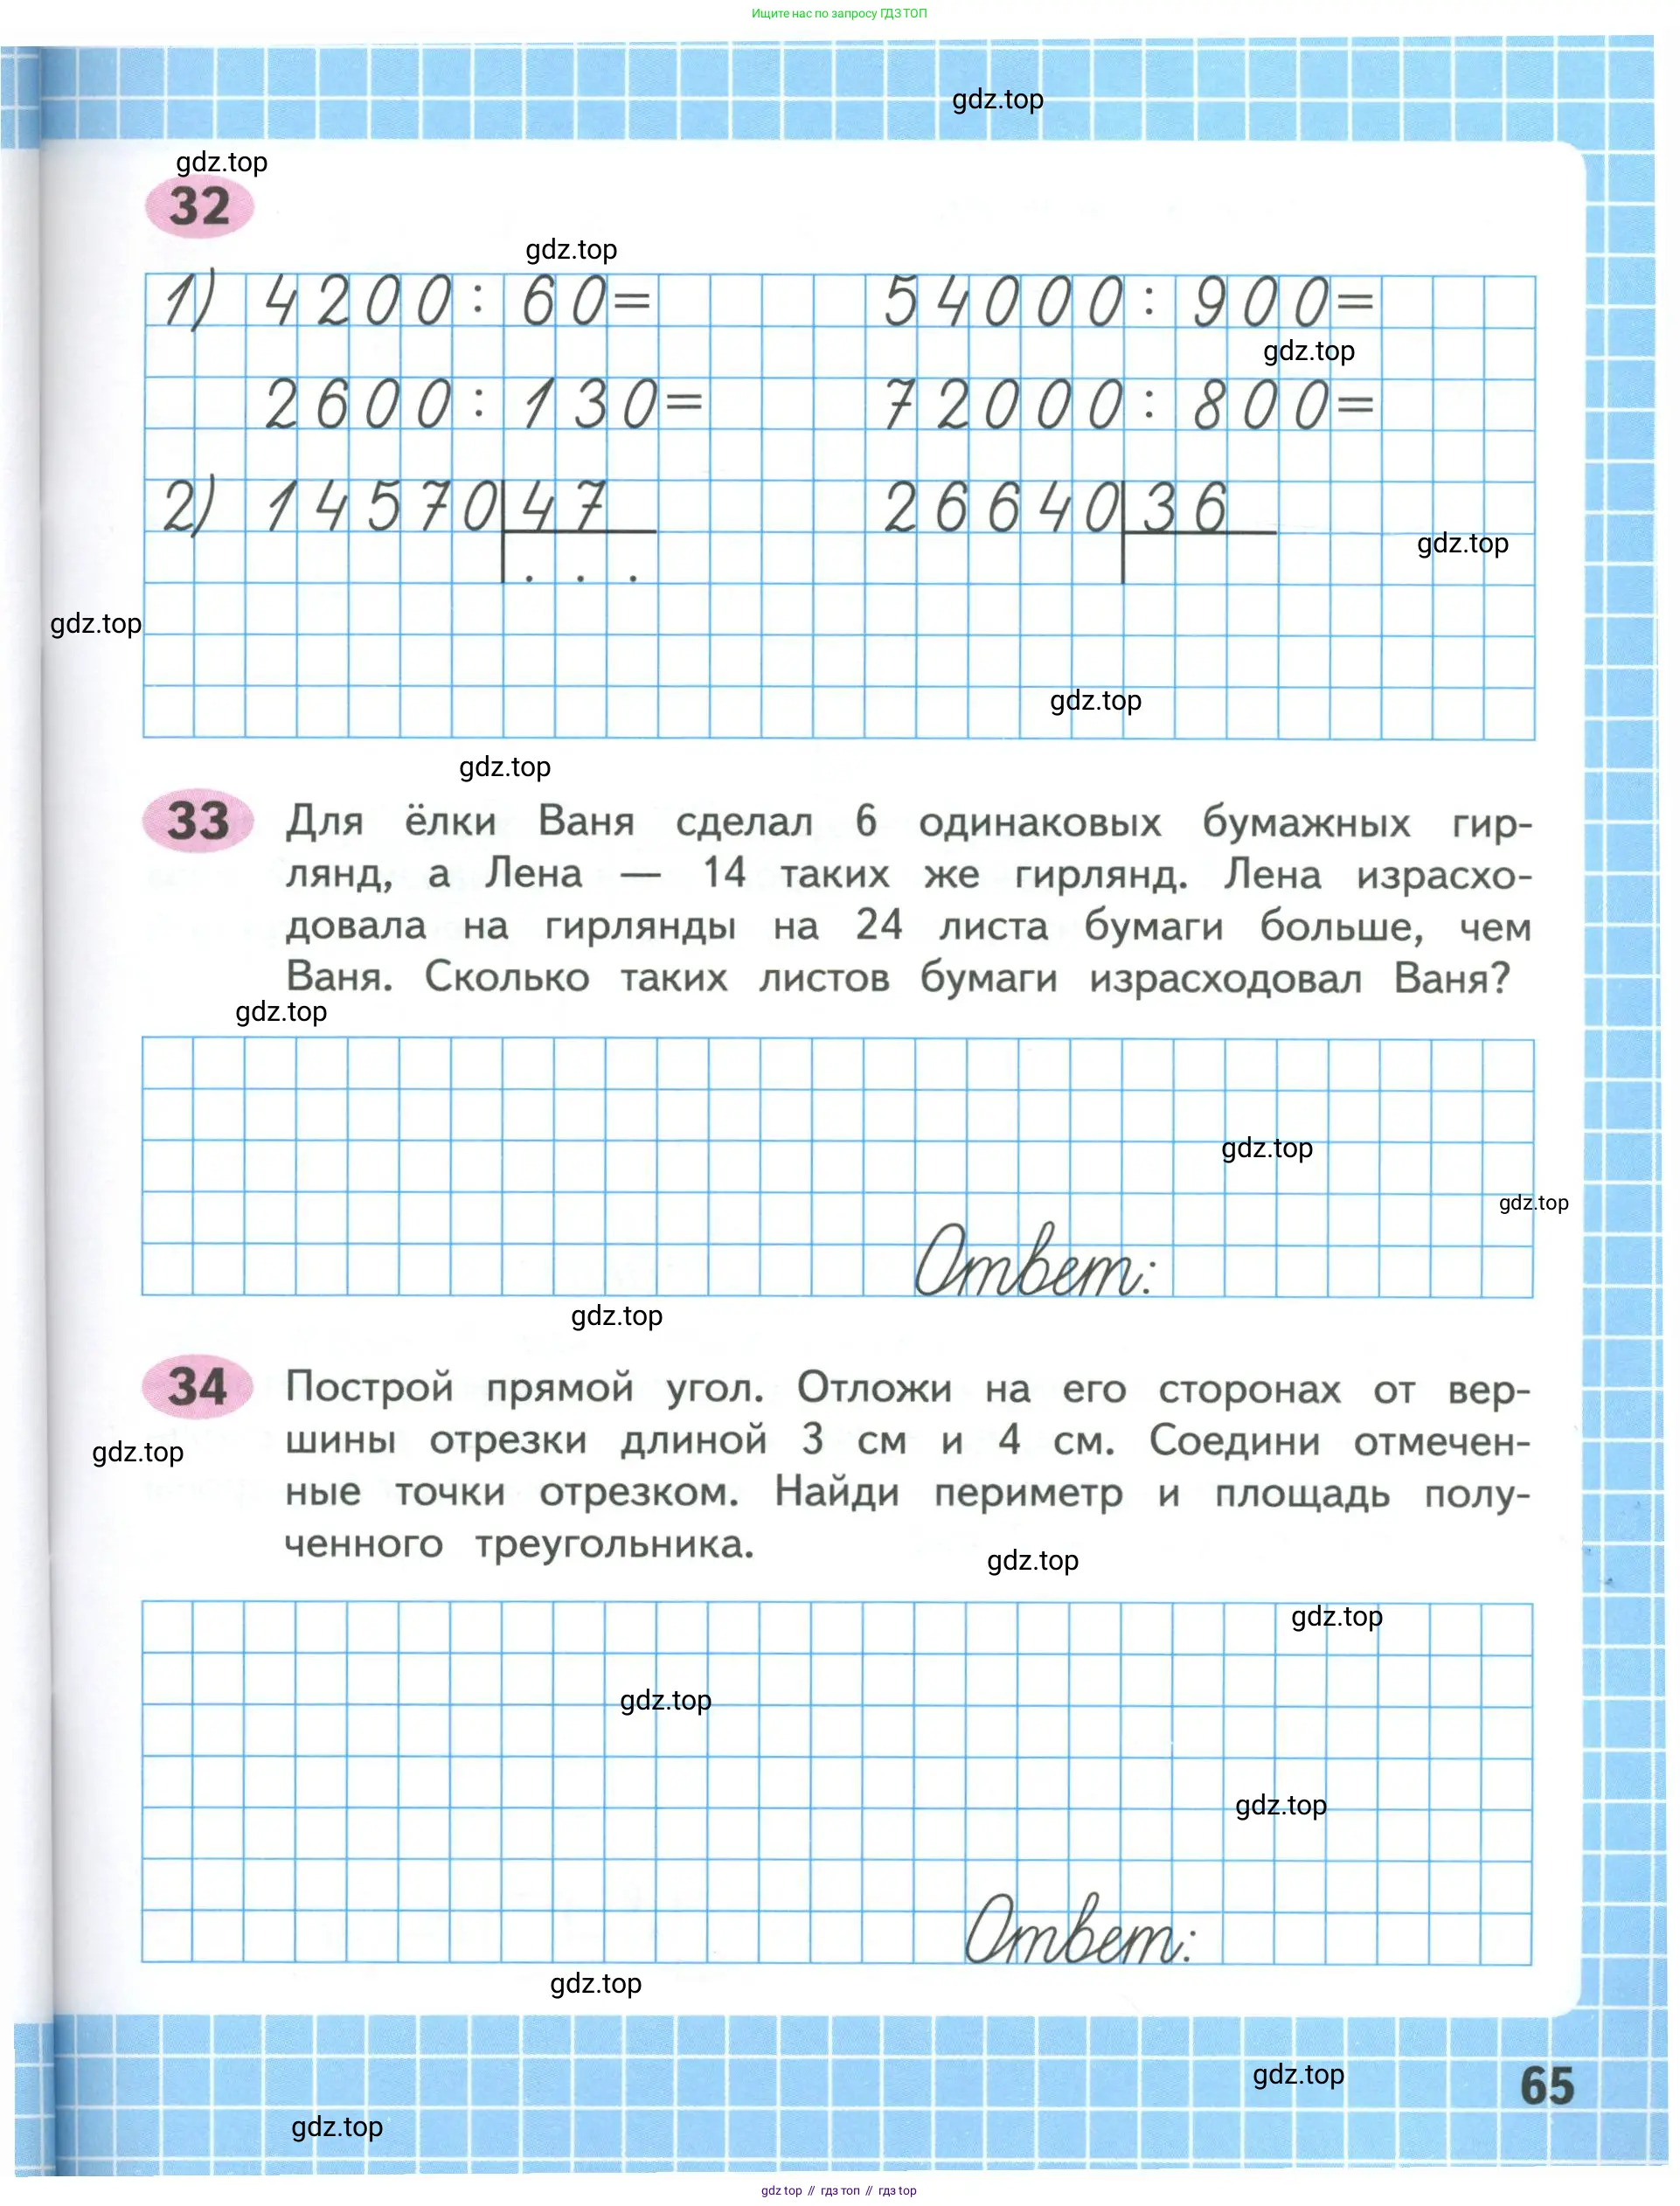 Ищите нас по запросу ГДЗ ТОП
gdz.top
gdz.top
32
gdz.top
1) 4200: 60= 54000: 900=
gdz.top
2600: 130= 72000: 800=
2) 14570 47 26640 36
gdz.top
. . .
gdz.top
gdz.top
gdz.top
33 Для ёлки Ваня сделал 6 одинаковых бумажных гир-
лянд, а Лена — 14 таких же гирлянд. Лена израсхо-
довала на гирлянды на 24 листа бумаги больше, чем
Ваня. Сколько таких листов бумаги израсходовал Ваня?
gdz.top
gdz.top
gdz.top
Ответ:
gdz.top
34 Построй прямой угол. Отложи на его сторонах от вер-
шины отрезки длиной 3 см и 4 см. Соедини отмечен-
gdz.top
ные точки отрезком. Найди периметр и площадь полу-
ченного треугольника.
gdz.top
gdz.top
gdz.top
gdz.top
Ответ:
gdz.top
gdz.top
65
gdz.top
gdz top // гдз топ // гдз top